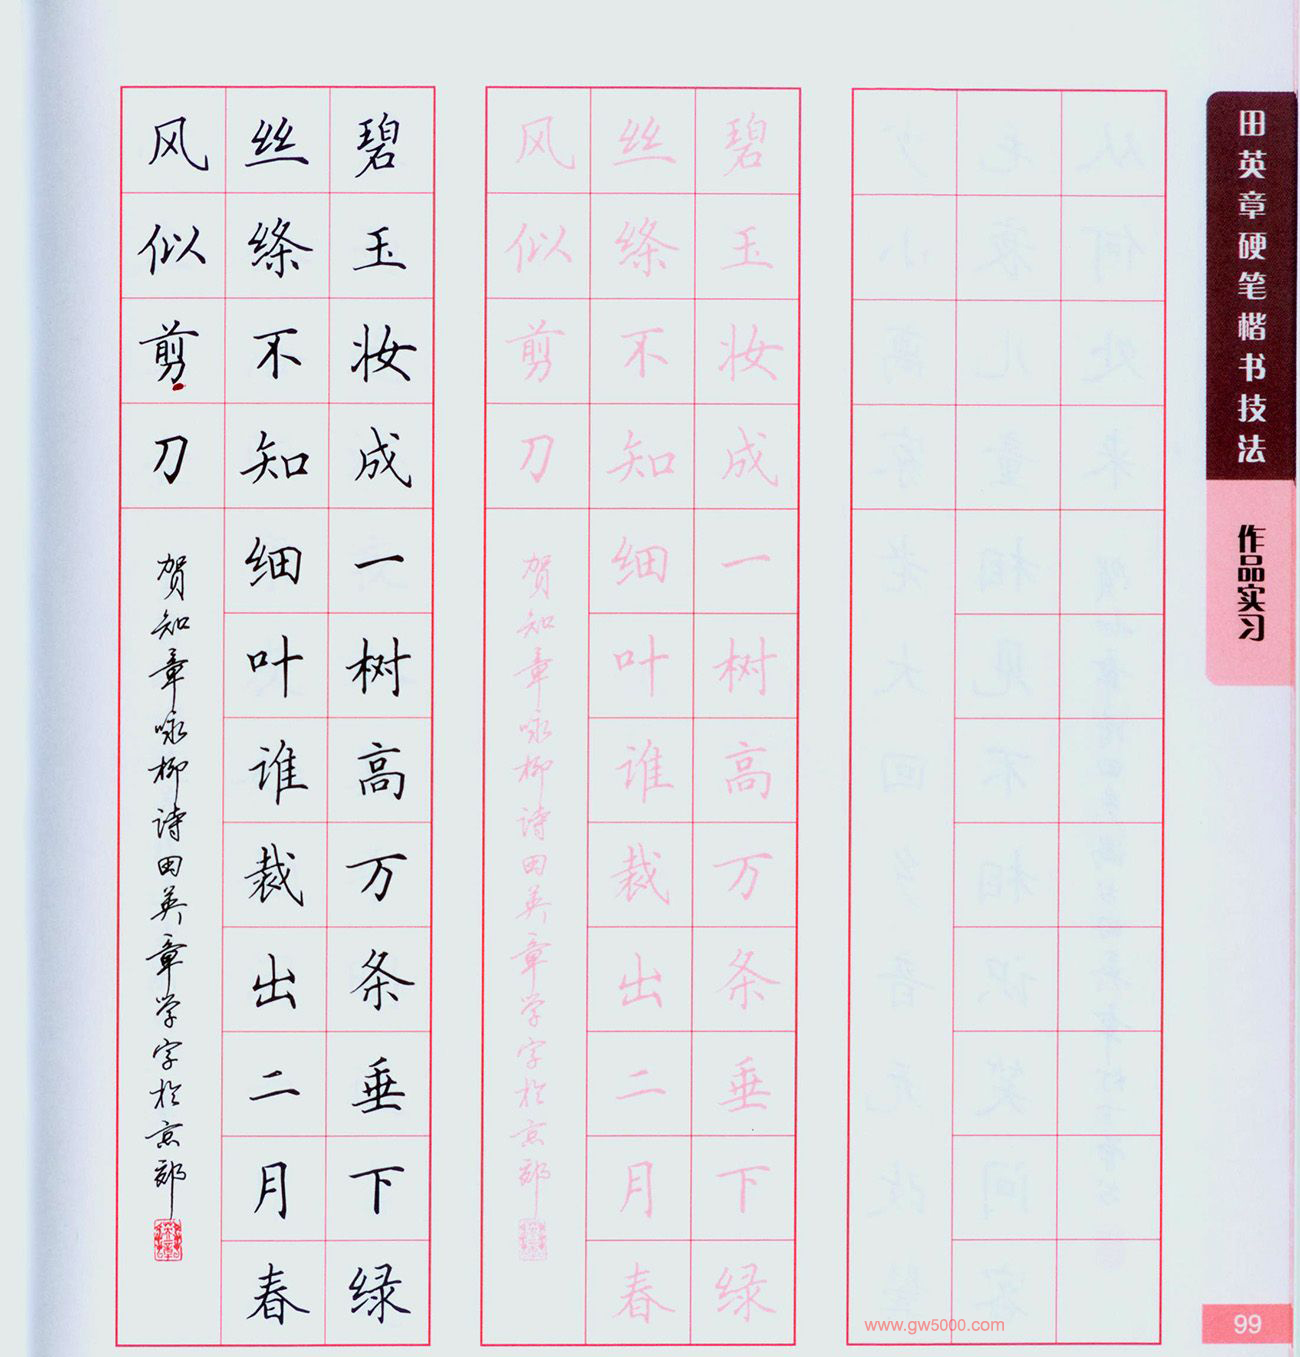 田英章硬笔楷书技法
作品实习
碧玉妆成一树高万条垂下绿
丝绦不知细叶谁裁出二月春
风似剪刀
贺知章咏柳诗田英章学字于京郊
碧玉妆成一树高万条垂下绿
丝绦不知细叶谁裁出二月春
风似剪刀
贺知章咏柳诗田英章学字于京郊
www.gw5000.com
99